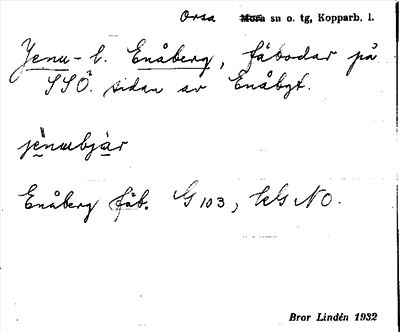 Orsa Mora sn o. tg, Kopparb. l.
Jenu- l. Enåberg, fäbodar på
SSÖ. sidan av Enåbgt.
jènubjàr
Enåberg fäb. G 103, NO.
Bror Lindén 1932